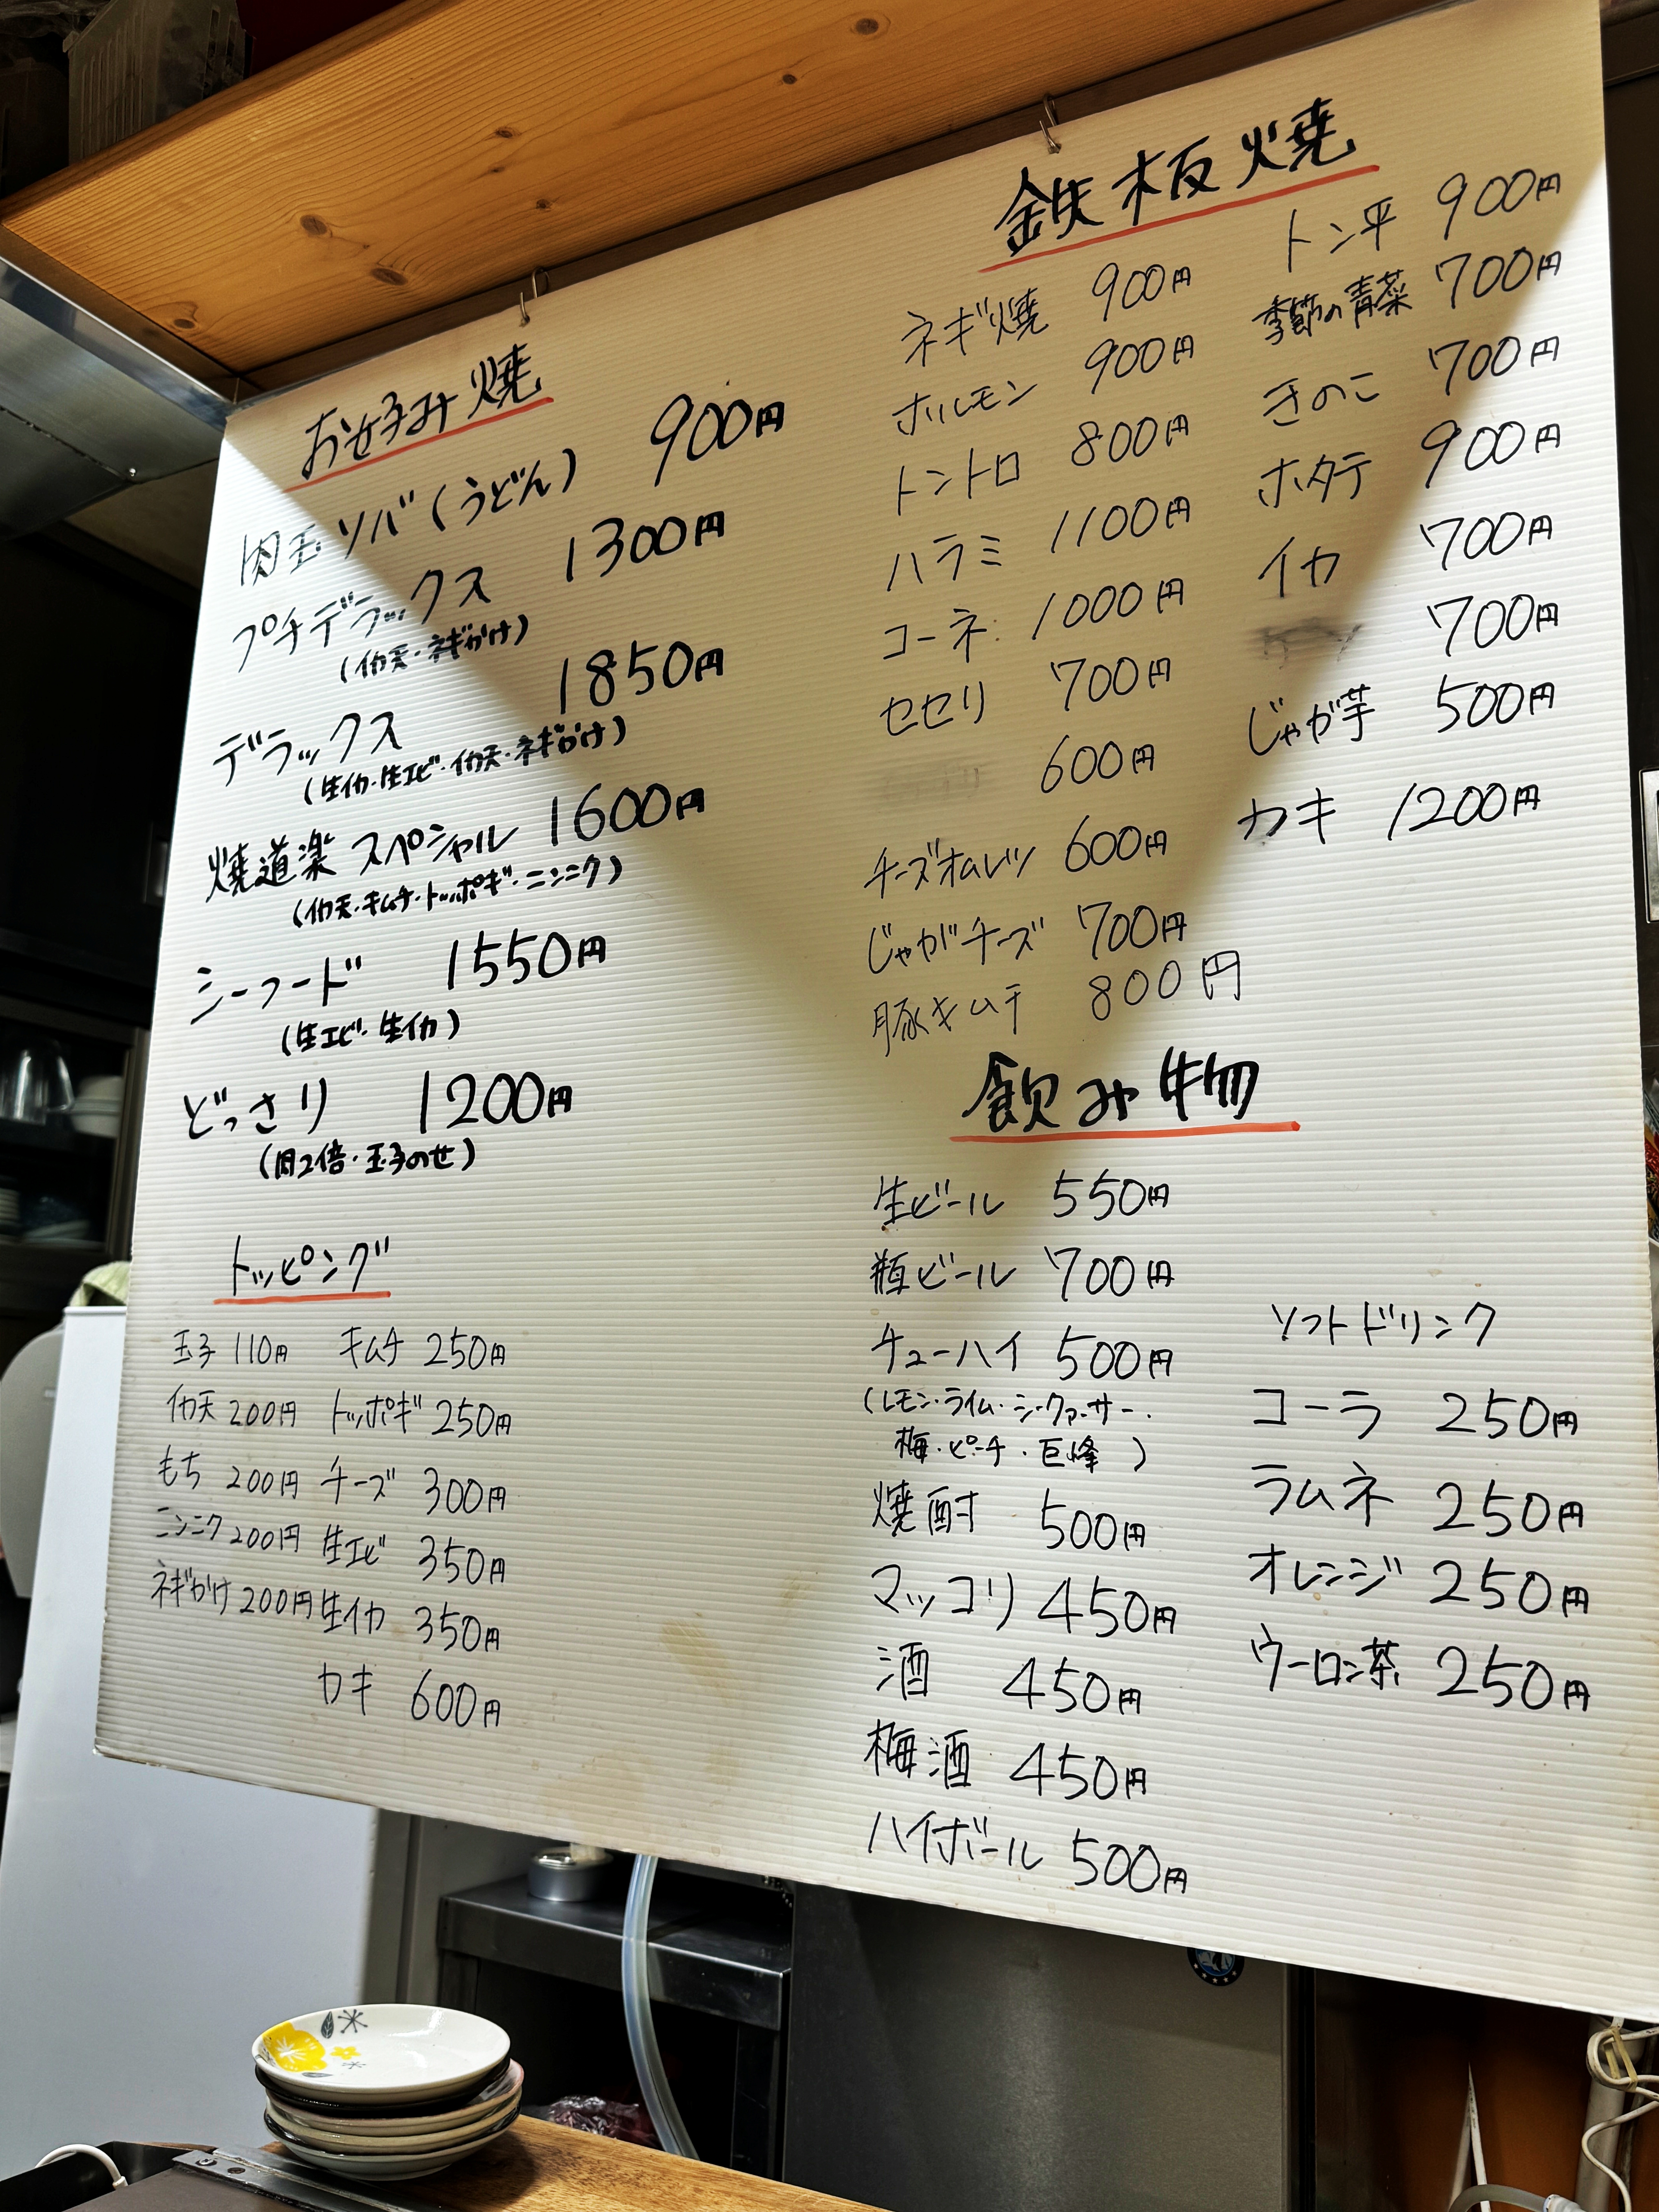 お好み焼
肉玉ソバ(うどん) 900円
プチデラックス 1300円
(イカ天・ネギかけ)
デラックス 1850円
(生イカ・生エビ・イカ天・ネギかけ)
焼道楽スペシャル 1600円
(イカ天・キムチ・トッポギ・ニンニク)
シーフード 1550円
(生エビ・生イカ)
どっさり 1200円
(肉2倍・玉子のせ)
トッピング
玉子 110円 キムチ 250円
イカ天 200円 トッポギ 250円
もち 200円 チーズ 300円
ニンニク 200円 生エビ 350円
ネギかけ 200円 生イカ 350円
カキ 600円
鉄板焼
ネギ焼 900円
ホルモン 900円
トントロ 800円
ハラミ 1100円
コーネ 1000円
セセリ 700円
600円
チーズオムレツ 600円
じゃがチーズ 700円
豚キムチ 800円
トン平 900円
季節の青菜 700円
きのこ 700円
ホタテ 900円
イカ 700円
700円
じゃが芋 500円
カキ 1200円
飲み物
生ビール 550円
瓶ビール 700円
チューハイ 500円
(レモン・ライム・シークァーサー・
梅・ピーチ・巨峰)
焼酎 500円
マッコリ 450円
酒 450円
梅酒 450円
ハイボール 500円
ソフトドリンク
コーラ 250円
ラムネ 250円
オレンジ 250円
ウーロン茶 250円